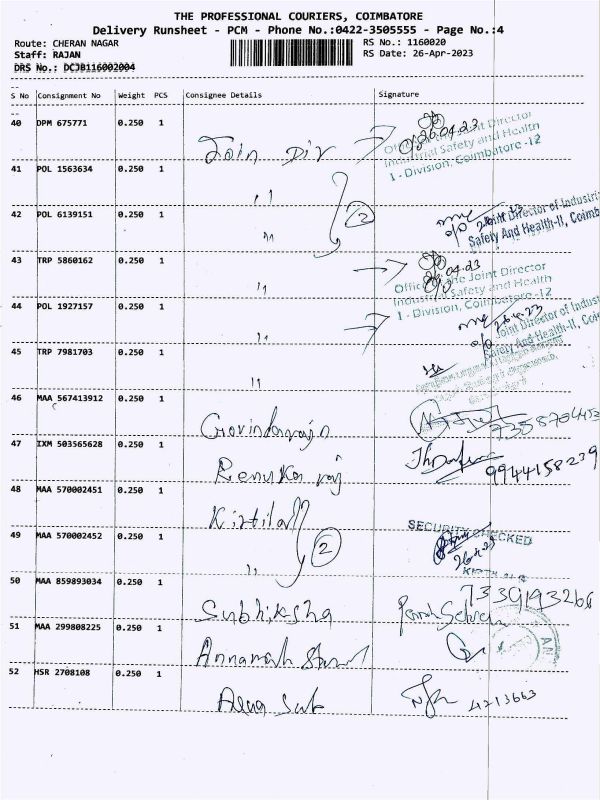 THE PROFESSIONAL COURIERS, COIMBATORE
Delivery Runsheet - PCM - Phone No.:0422-3505555 - Page No.:4
Route: CHERAN NAGAR RS No.: 1160020
Staff: RAJAN RS Date: 26-Apr-2023
DRS No.: DCJB116002004
S No Consignment No Weight PCS Consignee Details Signature
40 DPM 675771 0.250 1
Join Dir
26.04.23
Office of the Joint Director
Industrial Safety and Health
1 - Division, Coimbatore -12
41 POL 1563634 0.250 1
"
42 POL 6139151 0.250 1
" 2
Joint Director of Industri
Safety And Health-II, Coimb
43 TRP 5860162 0.250 1
"
26.04.23
Office of the Joint Director
Industrial Safety and Health
1 - Division, Coimbatore -12
44 POL 1927157 0.250 1
"
Joint Director of Indust
Safety And Health-II, Coi
45 TRP 7981703 0.250 1
"
46 MAA 567413912 0.250 1
Govindaraj
47 IXM 503565628 0.250 1
Renuka raj 9944158239
48 MAA 570002451 0.250 1
Kirtilal
49 MAA 570002452 0.250 1
" 2
SECURITY CHECKED
50 MAA 859893034 0.250 1
Subhiksha 7339193266
51 MAA 299808225 0.250 1
52 HSR 2708108 0.250 1
4213663